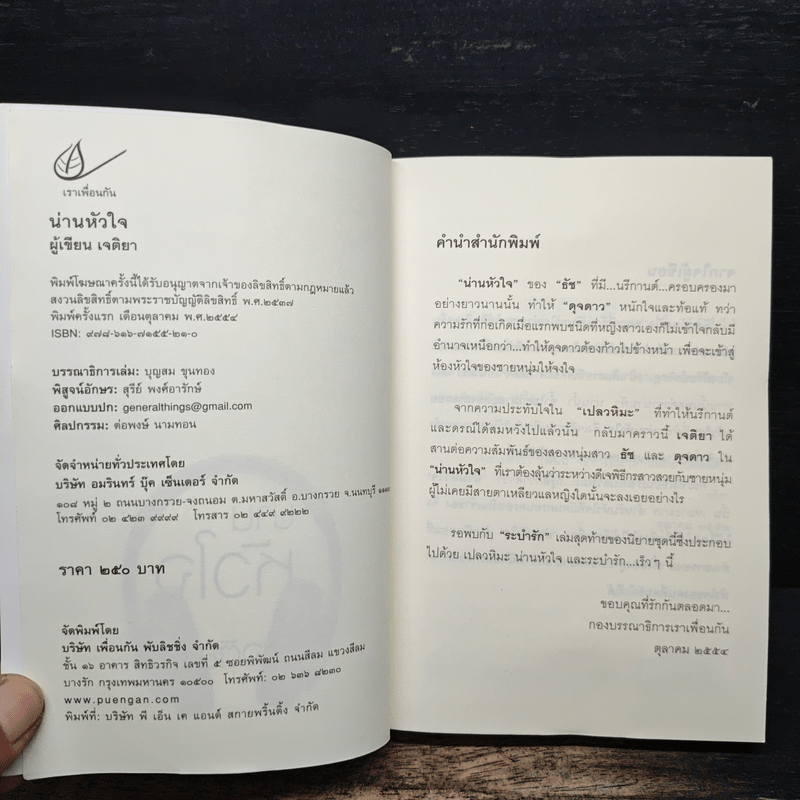 เราเพื่อนกัน
น่านหัวใจ
ผู้เขียน เจติยา
พิมพ์โฆษณาครั้งนี้ได้รับอนุญาตจากเจ้าของลิขสิทธิ์ตามกฎหมายแล้ว
สงวนลิขสิทธิ์ตามพระราชบัญญัติลิขสิทธิ์ พ.ศ.๒๕๓๗
พิมพ์ครั้งแรก เดือนตุลาคม พ.ศ.๒๕๕๔
ISBN: ๙๗๘-๖๑๖-๗๑๕๕-๒๑-๐
บรรณาธิการเล่ม: บุญสม ขุนทอง
พิสูจน์อักษร: สุรีย์ พงศ์อารักษ์
ออกแบบปก: generalthings@gmail.com
ศิลปกรรม: ต่อพงษ์ นามทอน
จัดจำหน่ายทั่วประเทศโดย
บริษัท อมรินทร์ บุ๊ค เซ็นเตอร์ จำกัด
๑๐๘ หมู่ ๒ ถนนบางกรวย-จงถนอม ต.มหาสวัสดิ์ อ.บางกรวย จ.นนทบุรี
โทรศัพท์ ๐๒ ๔๒๓ ๙๙๙๙ โทรสาร ๐๒ ๔๔๙ ๙๒๒๒
ราคา ๒๕๐ บาท
จัดพิมพ์โดย
บริษัท เพื่อนกัน พับลิชชิ่ง จำกัด
ชั้น ๑๖ อาคาร สิทธิวรกิจ เลขที่ ๕ ซอยพิพัฒน์ ถนนสีลม แขวงสีลม
บางรัก กรุงเทพมหานคร ๑๐๕๐๐ โทรศัพท์: ๐๒ ๖๓๖ ๘๒๓๐
www.puengan.com
พิมพ์ที่: บริษัท พี เอ็น เค แอนด์ สกายพริ้นติ้ง จำกัด
คำนำสำนักพิมพ์
“น่านหัวใจ” ของ “ธัช” ที่มี...นรีกานต์...ครอบครองมา
อย่างยาวนานนั้น ทำให้ “ดุจดาว” หนักใจและท้อแท้ ทว่า
ความรักที่ก่อเกิดเมื่อแรกพบชนิดที่หญิงสาวเองก็ไม่เข้าใจกลับมี
อำนาจเหนือกว่า...ทำให้ดุจดาวต้องก้าวไปข้างหน้า เพื่อจะเข้าสู่
ห้องหัวใจของชายหนุ่มให้จงใจ
จากความประทับใจใน “เปลวหิมะ” ที่ทำให้นรีกานต์
และดรณ์ได้สมหวังไปแล้วนั้น กลับมาคราวนี้ เจติยา ได้
สานต่อความสัมพันธ์ของสองหนุ่มสาว ธัช และ ดุจดาว ใน
“น่านหัวใจ” ที่เราต้องลุ้นว่าระหว่างดีเจพิธีกรสาวสวยกับชายหนุ่ม
ผู้ไม่เคยมีสายตาเหลียวแลหญิงใดนั้นจะลงเอยอย่างไร
รอพบกับ “ระบำรัก” เล่มสุดท้ายของนิยายชุดนี้ซึ่งประกอบ
ไปด้วย เปลวหิมะ น่านหัวใจ และระบำรัก...เร็วๆ นี้
ขอบคุณที่รักกันตลอดมา...
กองบรรณาธิการเราเพื่อนกัน
ตุลาคม ๒๕๕๔